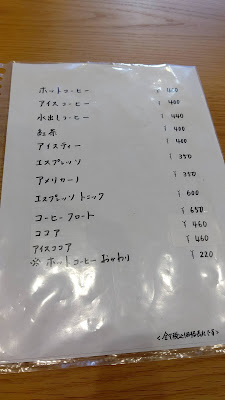 ホットコーヒー ¥ 400
アイスコーヒー ¥ 400
水出しコーヒー ¥ 440
紅茶 ¥ 400
アイスティー ¥ 400
エスプレッソ ¥ 350
アメリカーノ ¥ 350
エスプレッソトニック ¥ 600
コーヒーフロート ¥ 650
ココア ¥ 460
アイスココア ¥ 460
※ ホットコーヒーおかわり ¥ 220
<全て税込価格表示です>